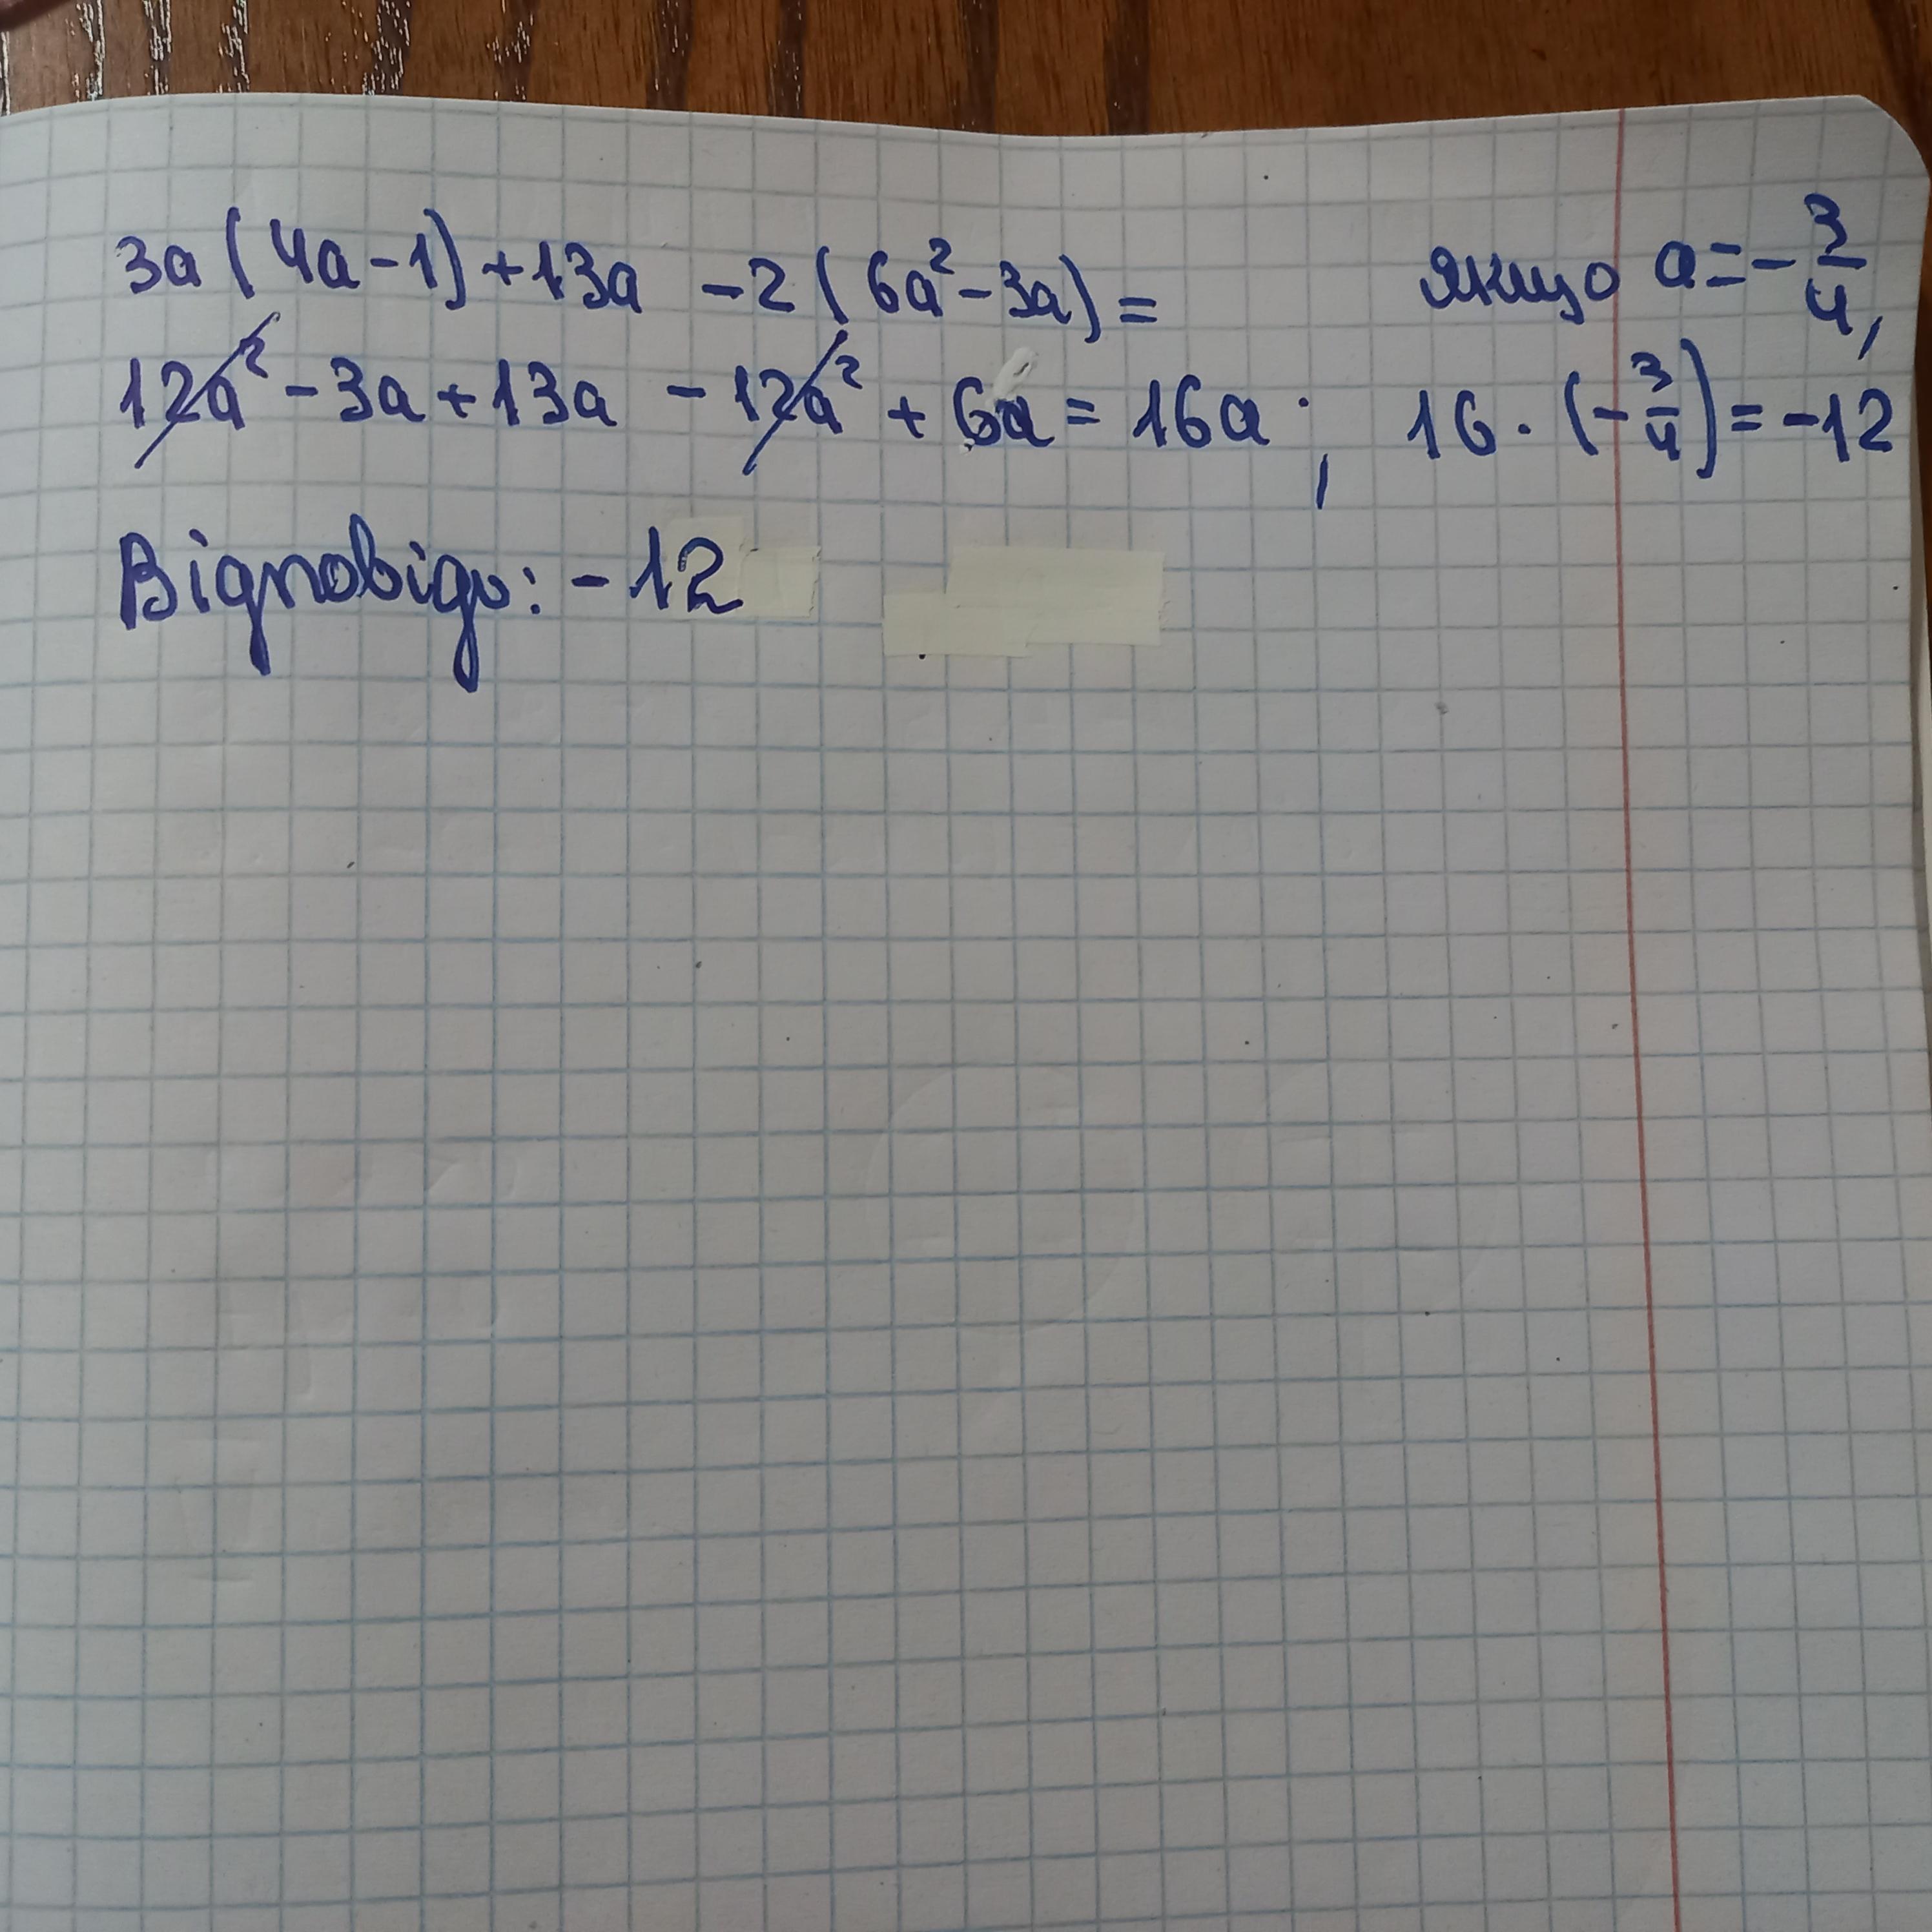 3a(4a-1)+13a -2(6a²-3a)= якщо a=-3/4,
12a²-3a+13a -12a²+6a=16a; 16·(-3/4)=-12
Відповідь: -12